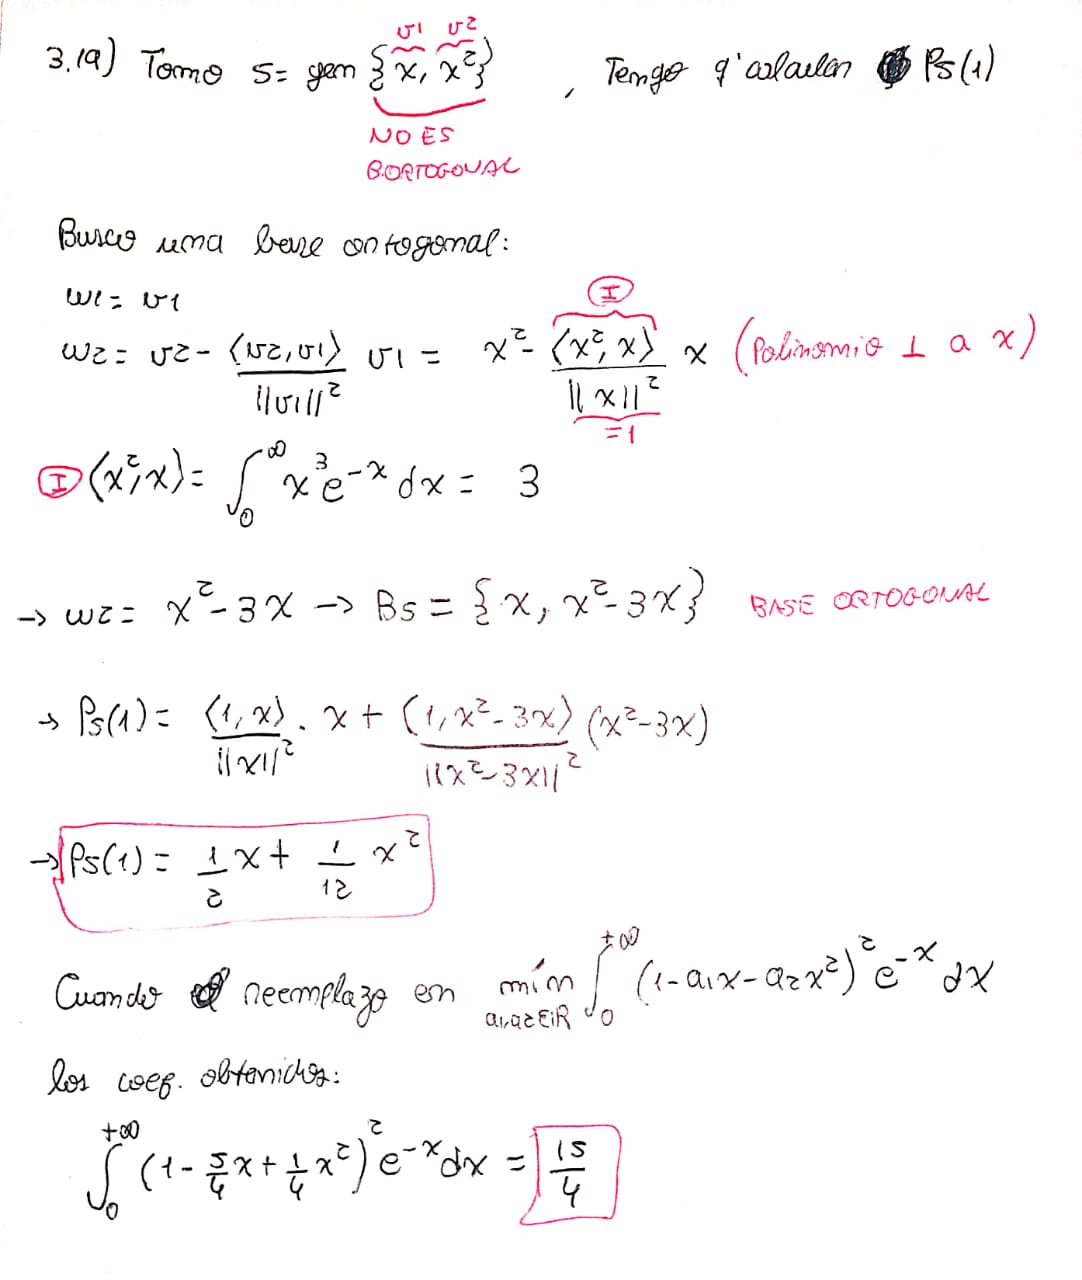 v1 v2
3.1a) Tomo S = gen {x, x²} , Tengo q' calcular Ps(1)
NO ES
B.ORTOGONAL
Busco una base ortogonal:
w1 = v1
w2 = v2 - <v2, v1> / ||v1||² v1 = x² - <x², x> / ||x||² x (Polinomio ⊥ a x)
I
=1
I <x², x> = ∫₀^∞ x³ e^-x dx = 3
→ w2 = x² - 3x → Bs = {x, x² - 3x} BASE ORTOGONAL
→ Ps(1) = <1, x> / ||x||² . x + <1, x² - 3x> / ||x² - 3x||² (x² - 3x)
→ Ps(1) = 1/2 x + 1/12 x²
Cuando reemplazo en mín a1,a2 ∈ IR ∫₀^+∞ (1 - a1x - a2x²)² e^-x dx
los coef. obtenidos:
∫₀^+∞ (1 - 5/4 x + 1/4 x²)² e^-x dx = 15/4